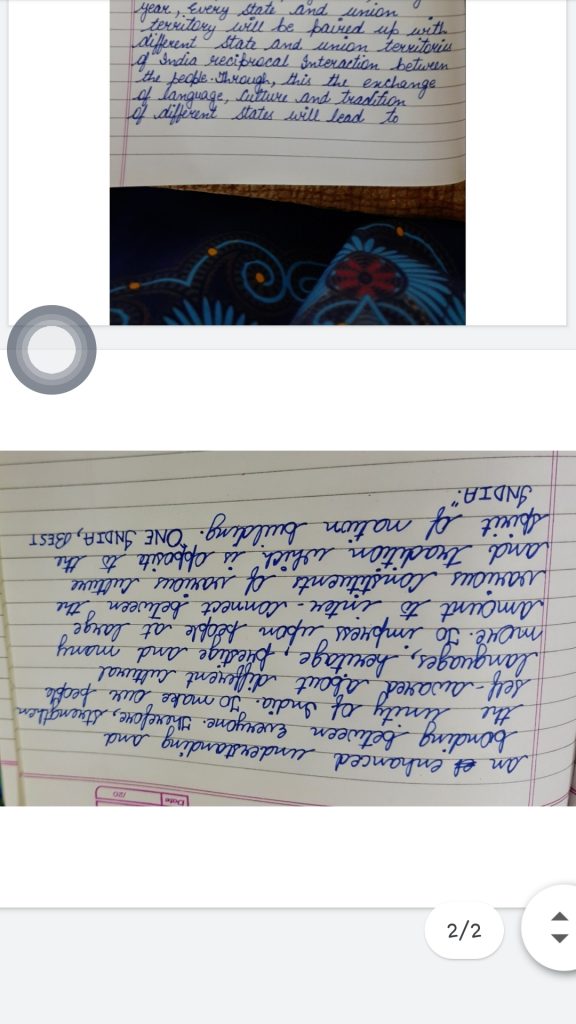 year, Every state and union
territory will be paired up with
different state and union territories
of India reciprocal Interaction between
the people. Through, this the exchange
of language, Culture and tradition
of different states will lead to
Date /20
an enhanced understanding and
bonding between everyone. Therefore, strengthen
the unity of India. To make our people
self-awared about different cultural
languages, heritage, prestige and many
more. To impress upon people at large
amount to inter-connect between the
various constituents of various culture
and tradition which is opposite to the
spirit of nation building. "ONE INDIA, BEST
INDIA".
2/2